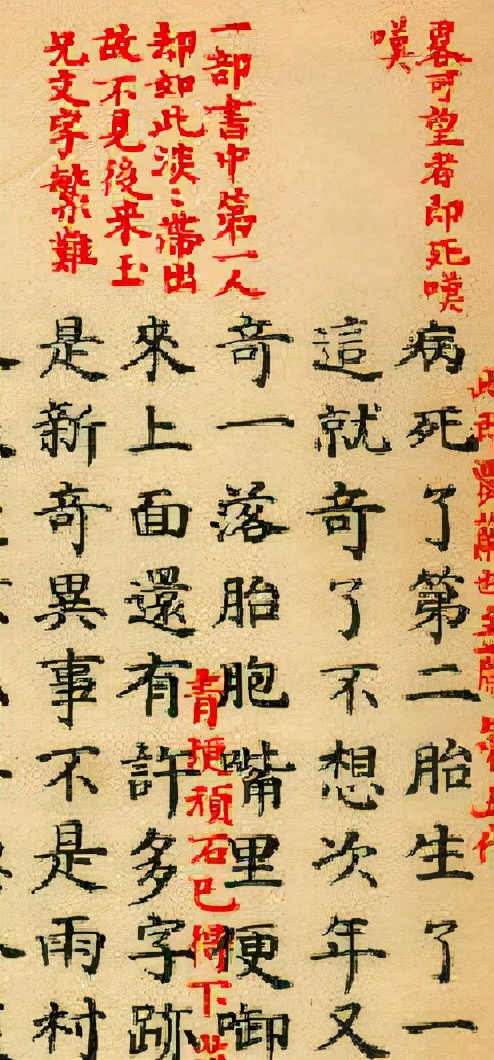 畧可望者即死嘆
嘆
一部書中第一人
却如此淡〻帶出
故不見後来玉
兄文字繁難
病死了第二胎生了一
這就奇了不想次年又
奇一落胎胞嘴里便啣
青埂頑石已得下
來上面還有許多字跡
是新奇異事不是雨村